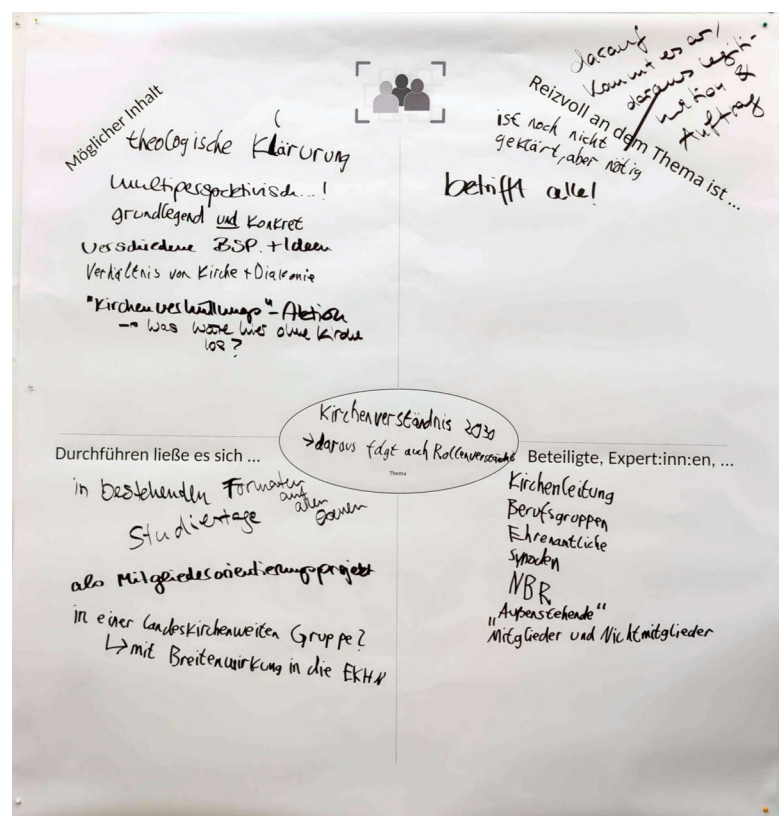 Möglicher Inhalt
theologische Klärurung
multiperspektivisch...!
grundlegend und konkret
verschiedene BSP. + Ideen
Verhältnis von Kirche + Diakonie
"Kirchenverhüllungs"-Aktion
→ Was wäre hier ohne Kirche
los?
darauf
kommt es an/
daraus Legiti-
mation &
Auftrag
Reizvoll an dem Thema ist ...
ist noch nicht
geklärt, aber nötig
betrifft alle!
Kirchenverständnis 2030
→ daraus folgt auch Rollenverständnis
Thema
Durchführen ließe es sich ...
in bestehenden Formaten
auf
allen
Ebenen
Studientage
als Mitgliedsorientierungsprojekt
in einer landeskirchenweiten Gruppe?
↳ mit Breitenwirkung in die EKHN
Beteiligte, Expert:inn:en, ...
Kirchenleitung
Berufsgruppen
Ehrenamtliche
Synoden
NBR
"Außenstehende"
Mitglieder und Nichtmitglieder